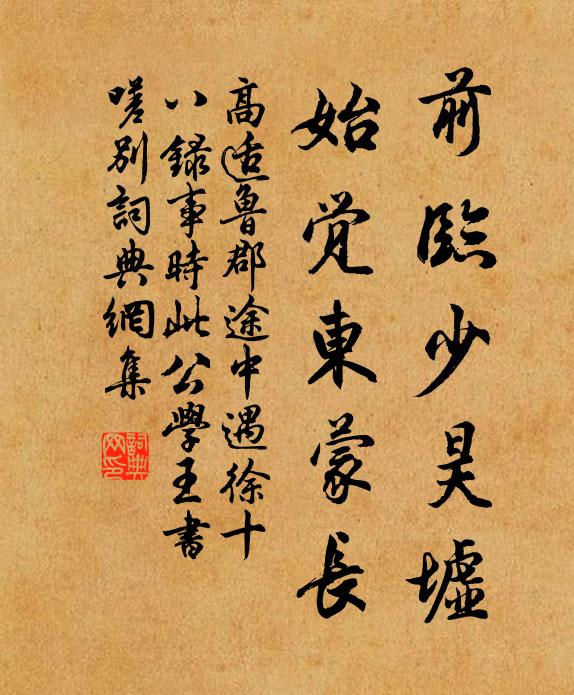 前臨少昊墟
始覺東蒙長
高适魯郡途中遇徐十
八錄事時此公學王書
嗟別詞典網集
詞典网印